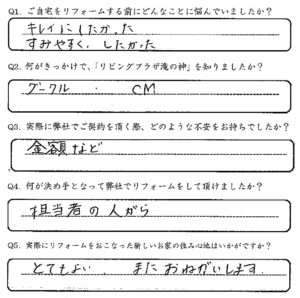 Q1. ご自宅をリフォームする前にどんなことに悩んでいましたか？
キレイにしたかった
すみやすく、したかった
Q2. 何がきっかけで、「リビングプラザ滝の神」を知りましたか？
グークル ・ CM
Q3. 実際に弊社でご契約を頂く際、どのような不安をお持ちでしたか？
金額など
Q4. 何が決め手となって弊社でリフォームをして頂けましたか？
担当者の人がら
Q5. 実際にリフォームをおこなった新しいお家の住み心地はいかがですか？
とてもよい、 またおねがいします。